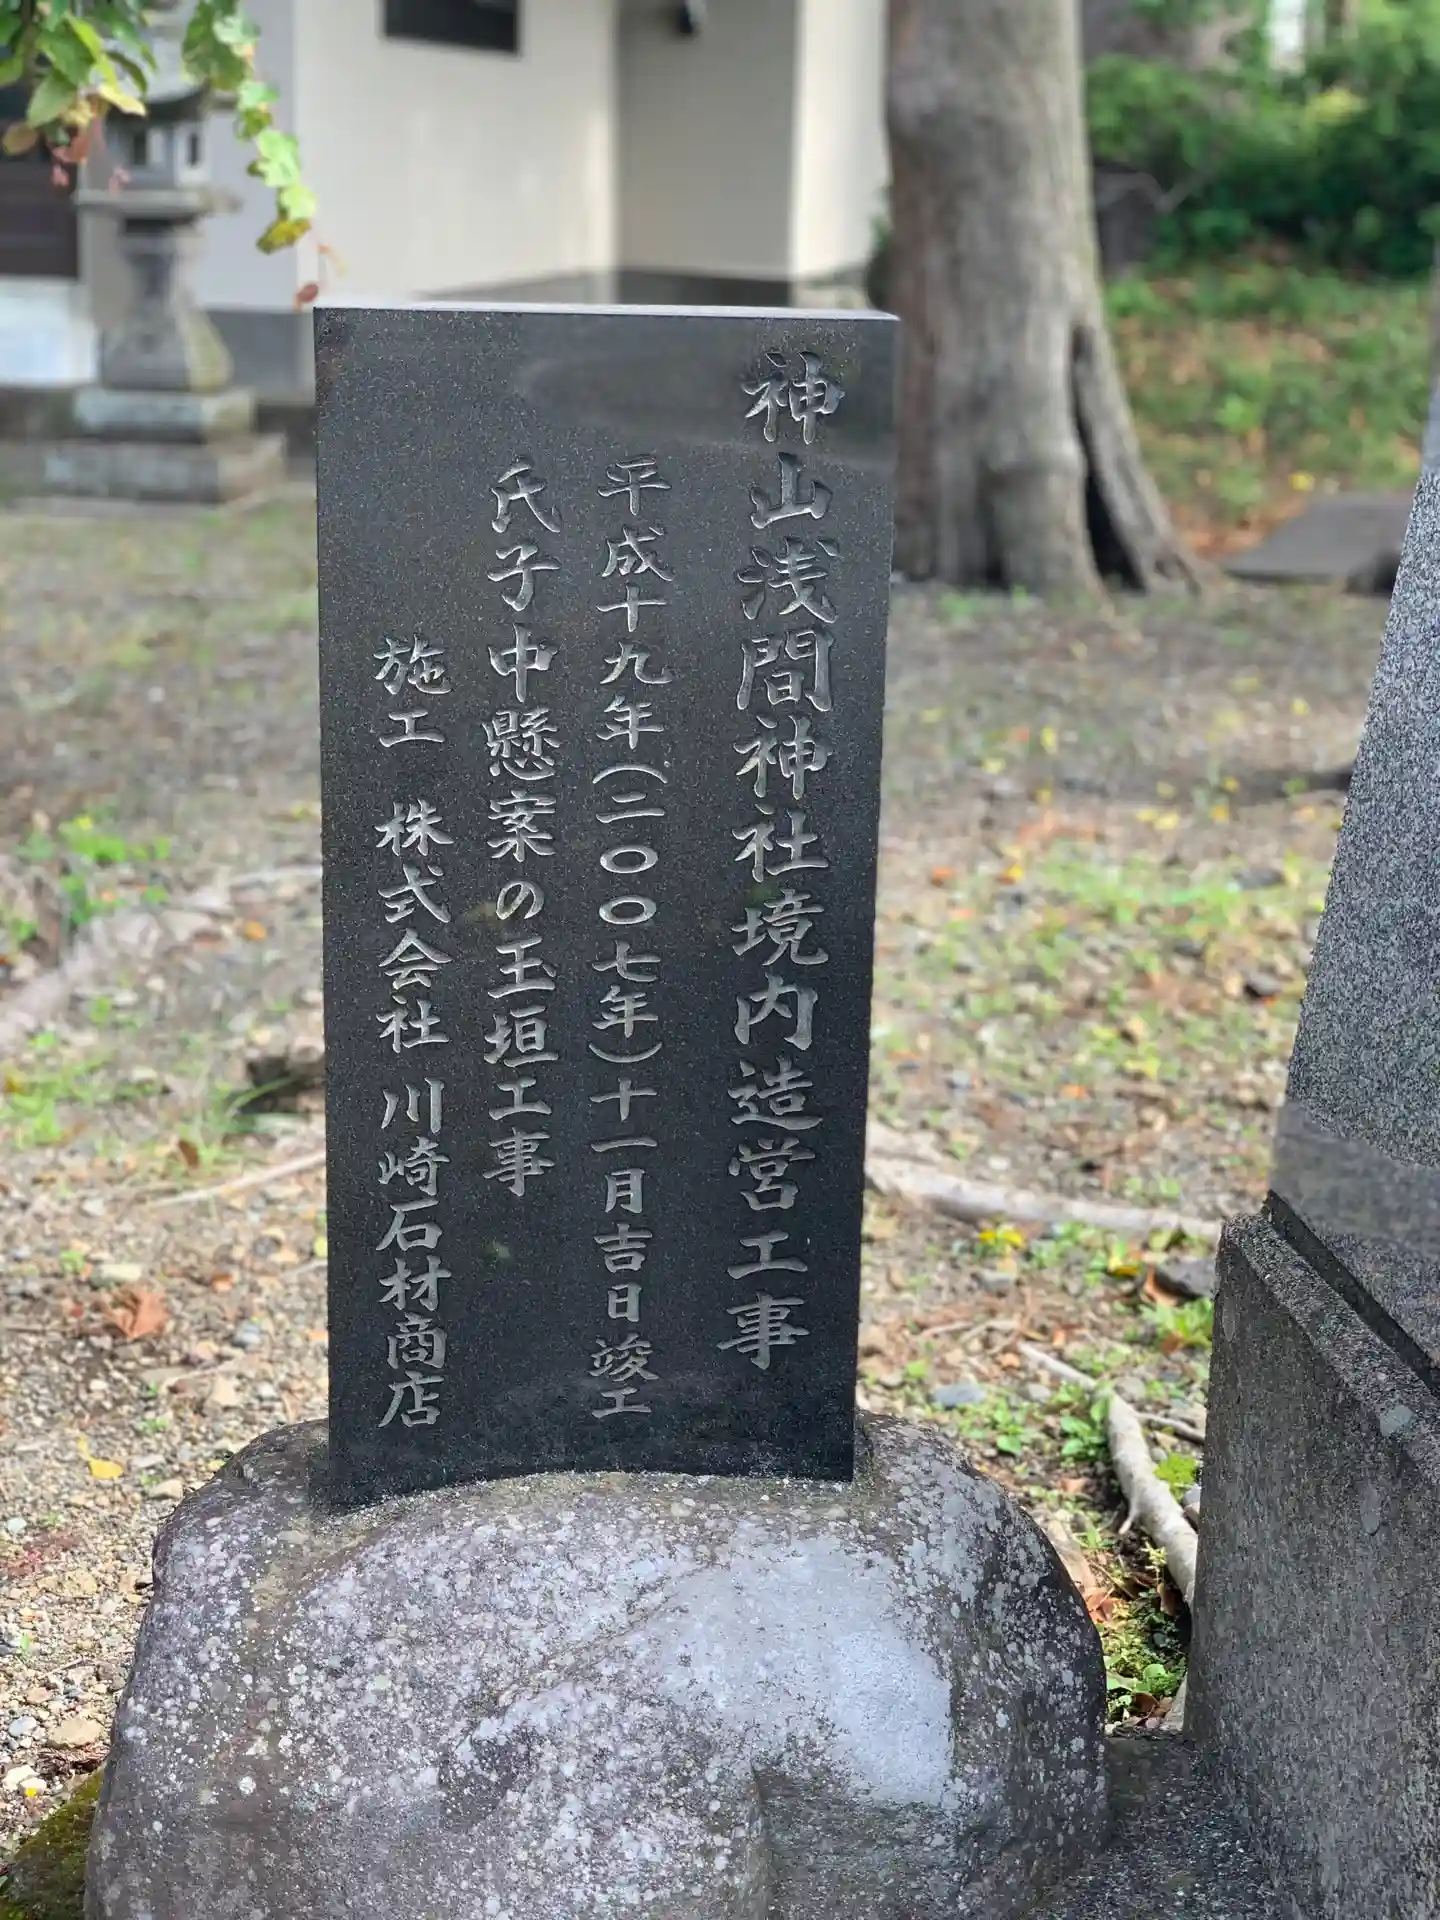 神山浅間神社境内造営工事
平成十九年(二〇〇七年)十一月吉日竣工
氏子中懸案の玉垣工事
施工 株式会社 川崎石材商店